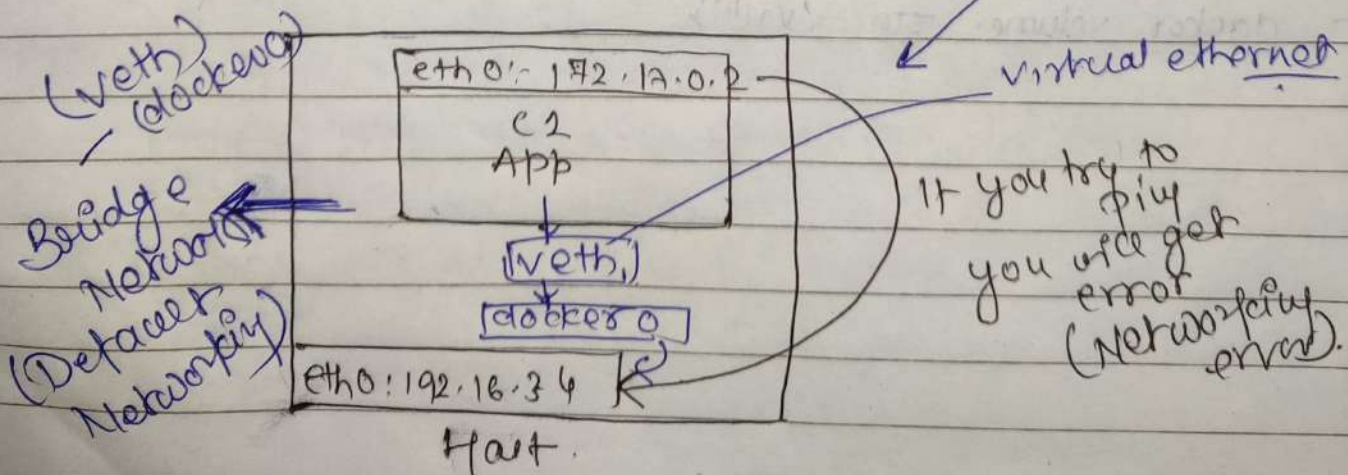 (veth)
(docker0)
Bridge
Network
(Default
Networking)
eth0:- 172.17.0.2
C1
App
veth
docker 0
eth0: 192.16.3.4
Host.
virtual ethernet
If you try to
ping
you will get
error
(Networking
error).